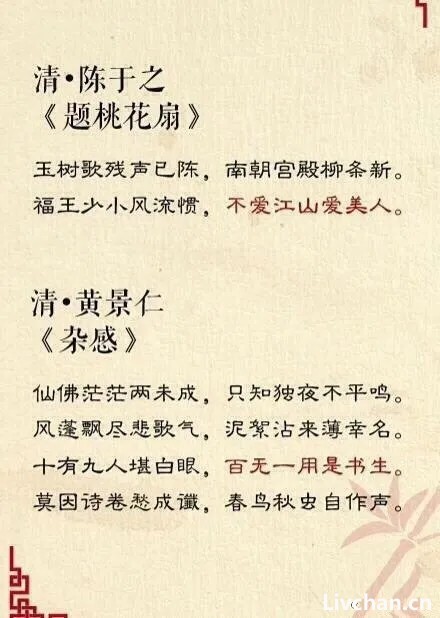 清·陈于之
《题桃花扇》
玉树歌残声已陈，南朝宫殿柳条新。
福王少小风流惯，不爱江山爱美人。
清·黄景仁
《杂感》
仙佛茫茫两未成，只知独夜不平鸣。
风蓬飘尽悲歌气，泥絮沾来薄幸名。
十有九人堪白眼，百无一用是书生。
莫因诗卷愁成谶，春鸟秋虫自作声。
Livchan.cn